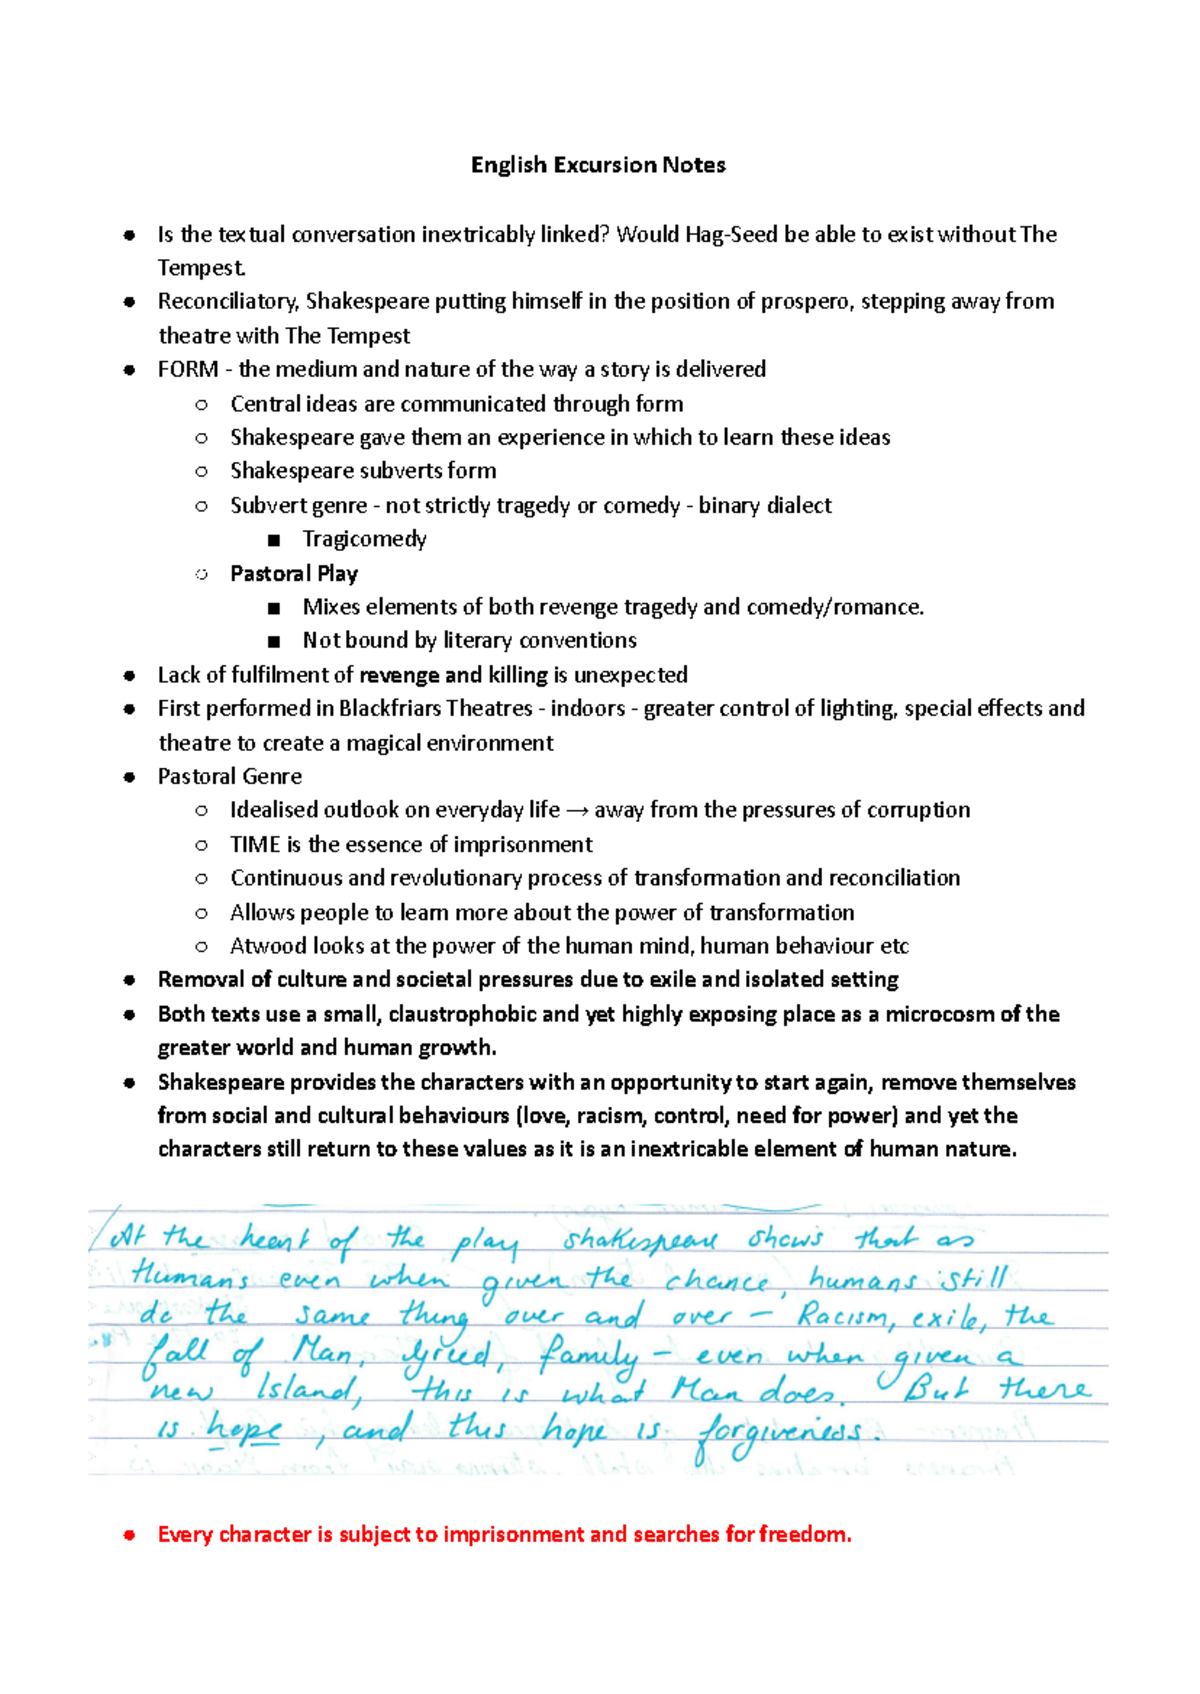 English Excursion Notes
● Is the textual conversation inextricably linked? Would Hag-Seed be able to exist without The
Tempest.
● Reconciliatory, Shakespeare putting himself in the position of prospero, stepping away from
theatre with The Tempest
● FORM - the medium and nature of the way a story is delivered
○ Central ideas are communicated through form
○ Shakespeare gave them an experience in which to learn these ideas
○ Shakespeare subverts form
○ Subvert genre - not strictly tragedy or comedy - binary dialect
■ Tragicomedy
○ Pastoral Play
■ Mixes elements of both revenge tragedy and comedy/romance.
■ Not bound by literary conventions
● Lack of fulfilment of revenge and killing is unexpected
● First performed in Blackfriars Theatres - indoors - greater control of lighting, special effects and
theatre to create a magical environment
● Pastoral Genre
○ Idealised outlook on everyday life → away from the pressures of corruption
○ TIME is the essence of imprisonment
○ Continuous and revolutionary process of transformation and reconciliation
○ Allows people to learn more about the power of transformation
○ Atwood looks at the power of the human mind, human behaviour etc
● Removal of culture and societal pressures due to exile and isolated setting
● Both texts use a small, claustrophobic and yet highly exposing place as a microcosm of the
greater world and human growth.
● Shakespeare provides the characters with an opportunity to start again, remove themselves
from social and cultural behaviours (love, racism, control, need for power) and yet the
characters still return to these values as it is an inextricable element of human nature.
At the heart of the play Shakespeare shows that as
Humans even when given the chance, humans still
do the same thing over and over – Racism, exile, the
fall of Man, Greed, family – even when given a
new Island, this is what Man does. But there
is hope, and this hope is forgiveness.
● Every character is subject to imprisonment and searches for freedom.